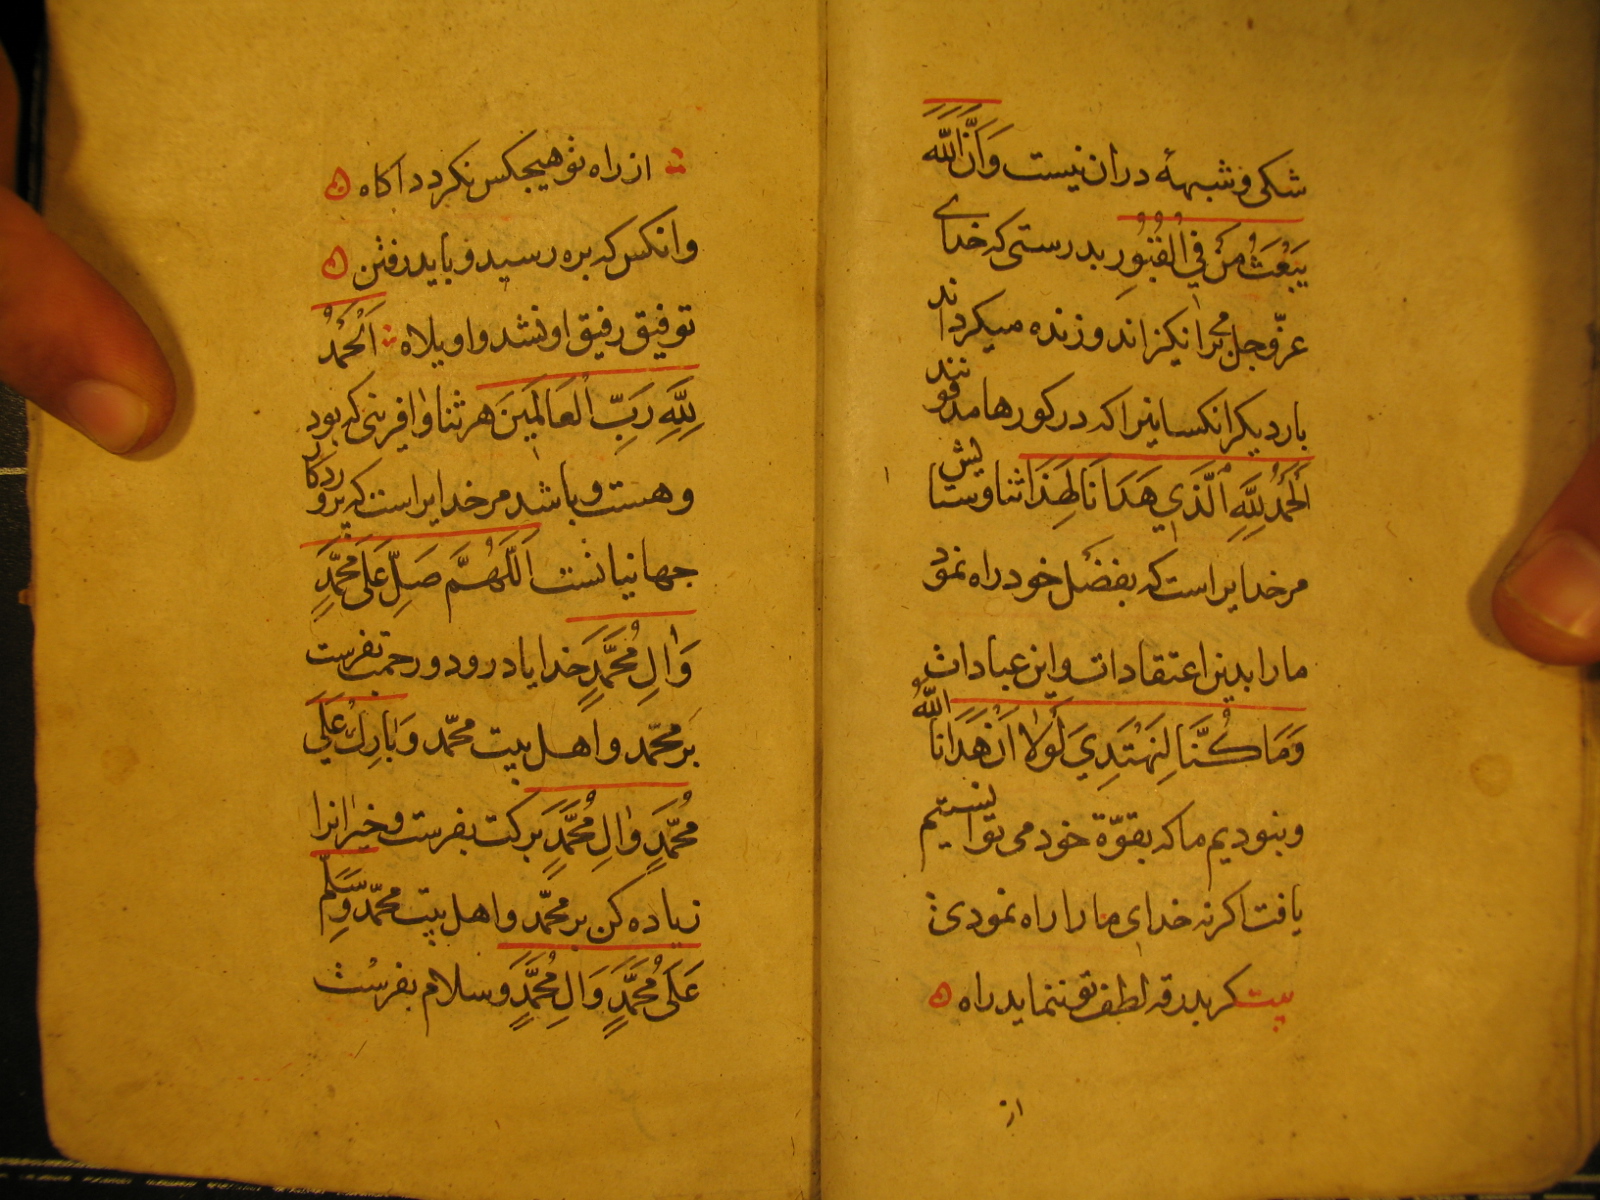 شکی و شبههٔ دران نیست وَاَنَّ اللّٰهَ
یَبْعَثُ مَنْ فِي الْقُبُورِ بدرستی که خدای
عزّوجل برانکیزاند و زنده میکرداند
بار دیکر انکسانیرا که در کورها مدفونند
اَلْحَمْدُ لِلّٰهِ الَّذِي هَدَانَا لِهَذَا ثنا و ستایش
مرخدایراست که بفضل خود راه نمود
ما را بدین اعتقادات و این عبادات
وَمَا كُنَّا لِنَهْتَدِيَ لَوْلَا اَنْ هَدَانَا اللّٰهُ
و نبودیم ما که بقوّة خود می توانستیم
یافت اکر نه خدای ما را راه نمودی
بیت کر بدرقه لطف تو ننماید راه
از
از راه تو هیچکس نکردد اکاه
وانکس که بره رسید و باید رفتن
توفیق رفیق او نشد واویلاه اَلْحَمْدُ
لِلّٰهِ رَبِّ الْعَالَمِينَ هر ثنا و افرینی که بود
و هست و باشد مرخدایراست که پروردکار
جهانیانست اَللّٰهُمَّ صَلِّ عَلَى مُحَمَّدٍ
وَاٰلِ مُحَمَّدٍ خدایا درود و رحمت بفرست
بر محمّد و اهل بیت محمّد وَبَارِكْ عَلَى
مُحَمَّدٍ وَاٰلِ مُحَمَّدٍ برکت بفرست و خیرانرا
زیاده کن بر محمّد و اهل بیت محمّد وَسَلِّمْ
عَلَى مُحَمَّدٍ وَاٰلِ مُحَمَّدٍ و سلام بفرست